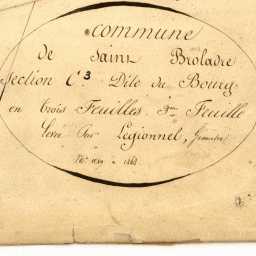 commune
de Saint Broladre
Section C.3 Dite du Bourg
en trois Feuilles. 3me Feuille
levé Par Légionnel, Géomètre